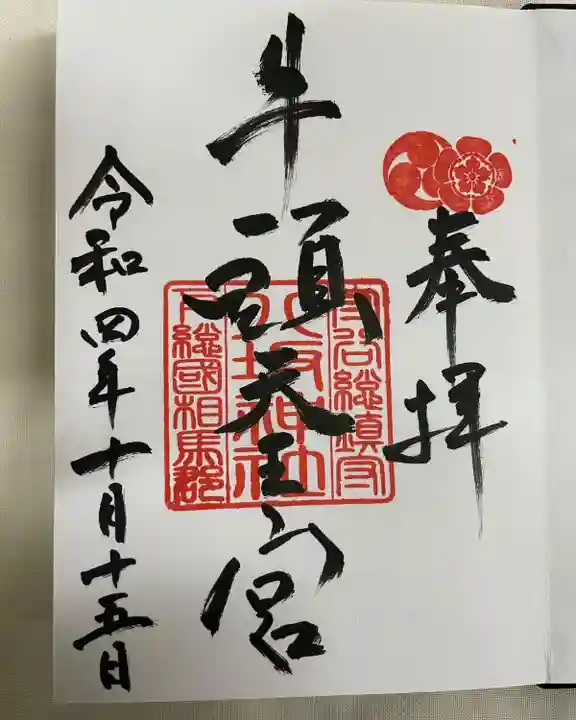 奉拝
牛頭天王宮
守谷総鎮守
八坂神社
下総國相馬郡
令和四年十月十五日